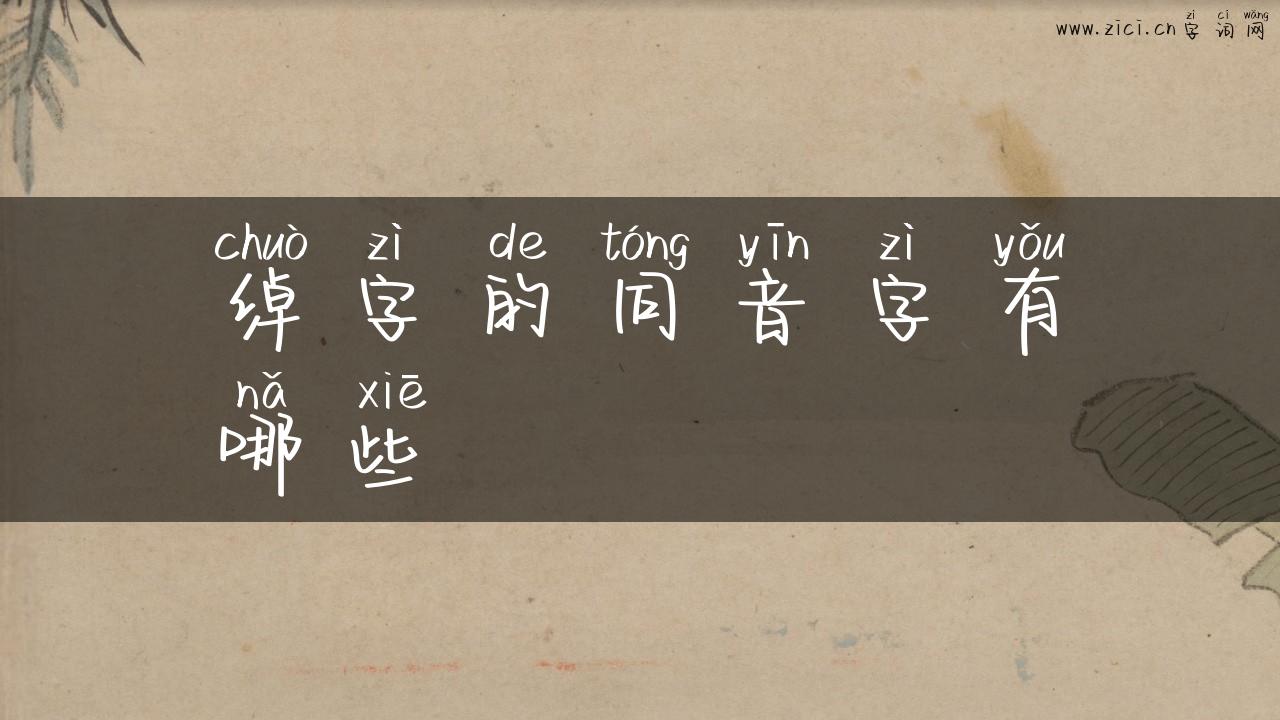 zì cí wǎng
www.zici.cn 字词网
chuò zì de tóng yīn zì yǒu
绰字的同音字有
nǎ xiē
哪些